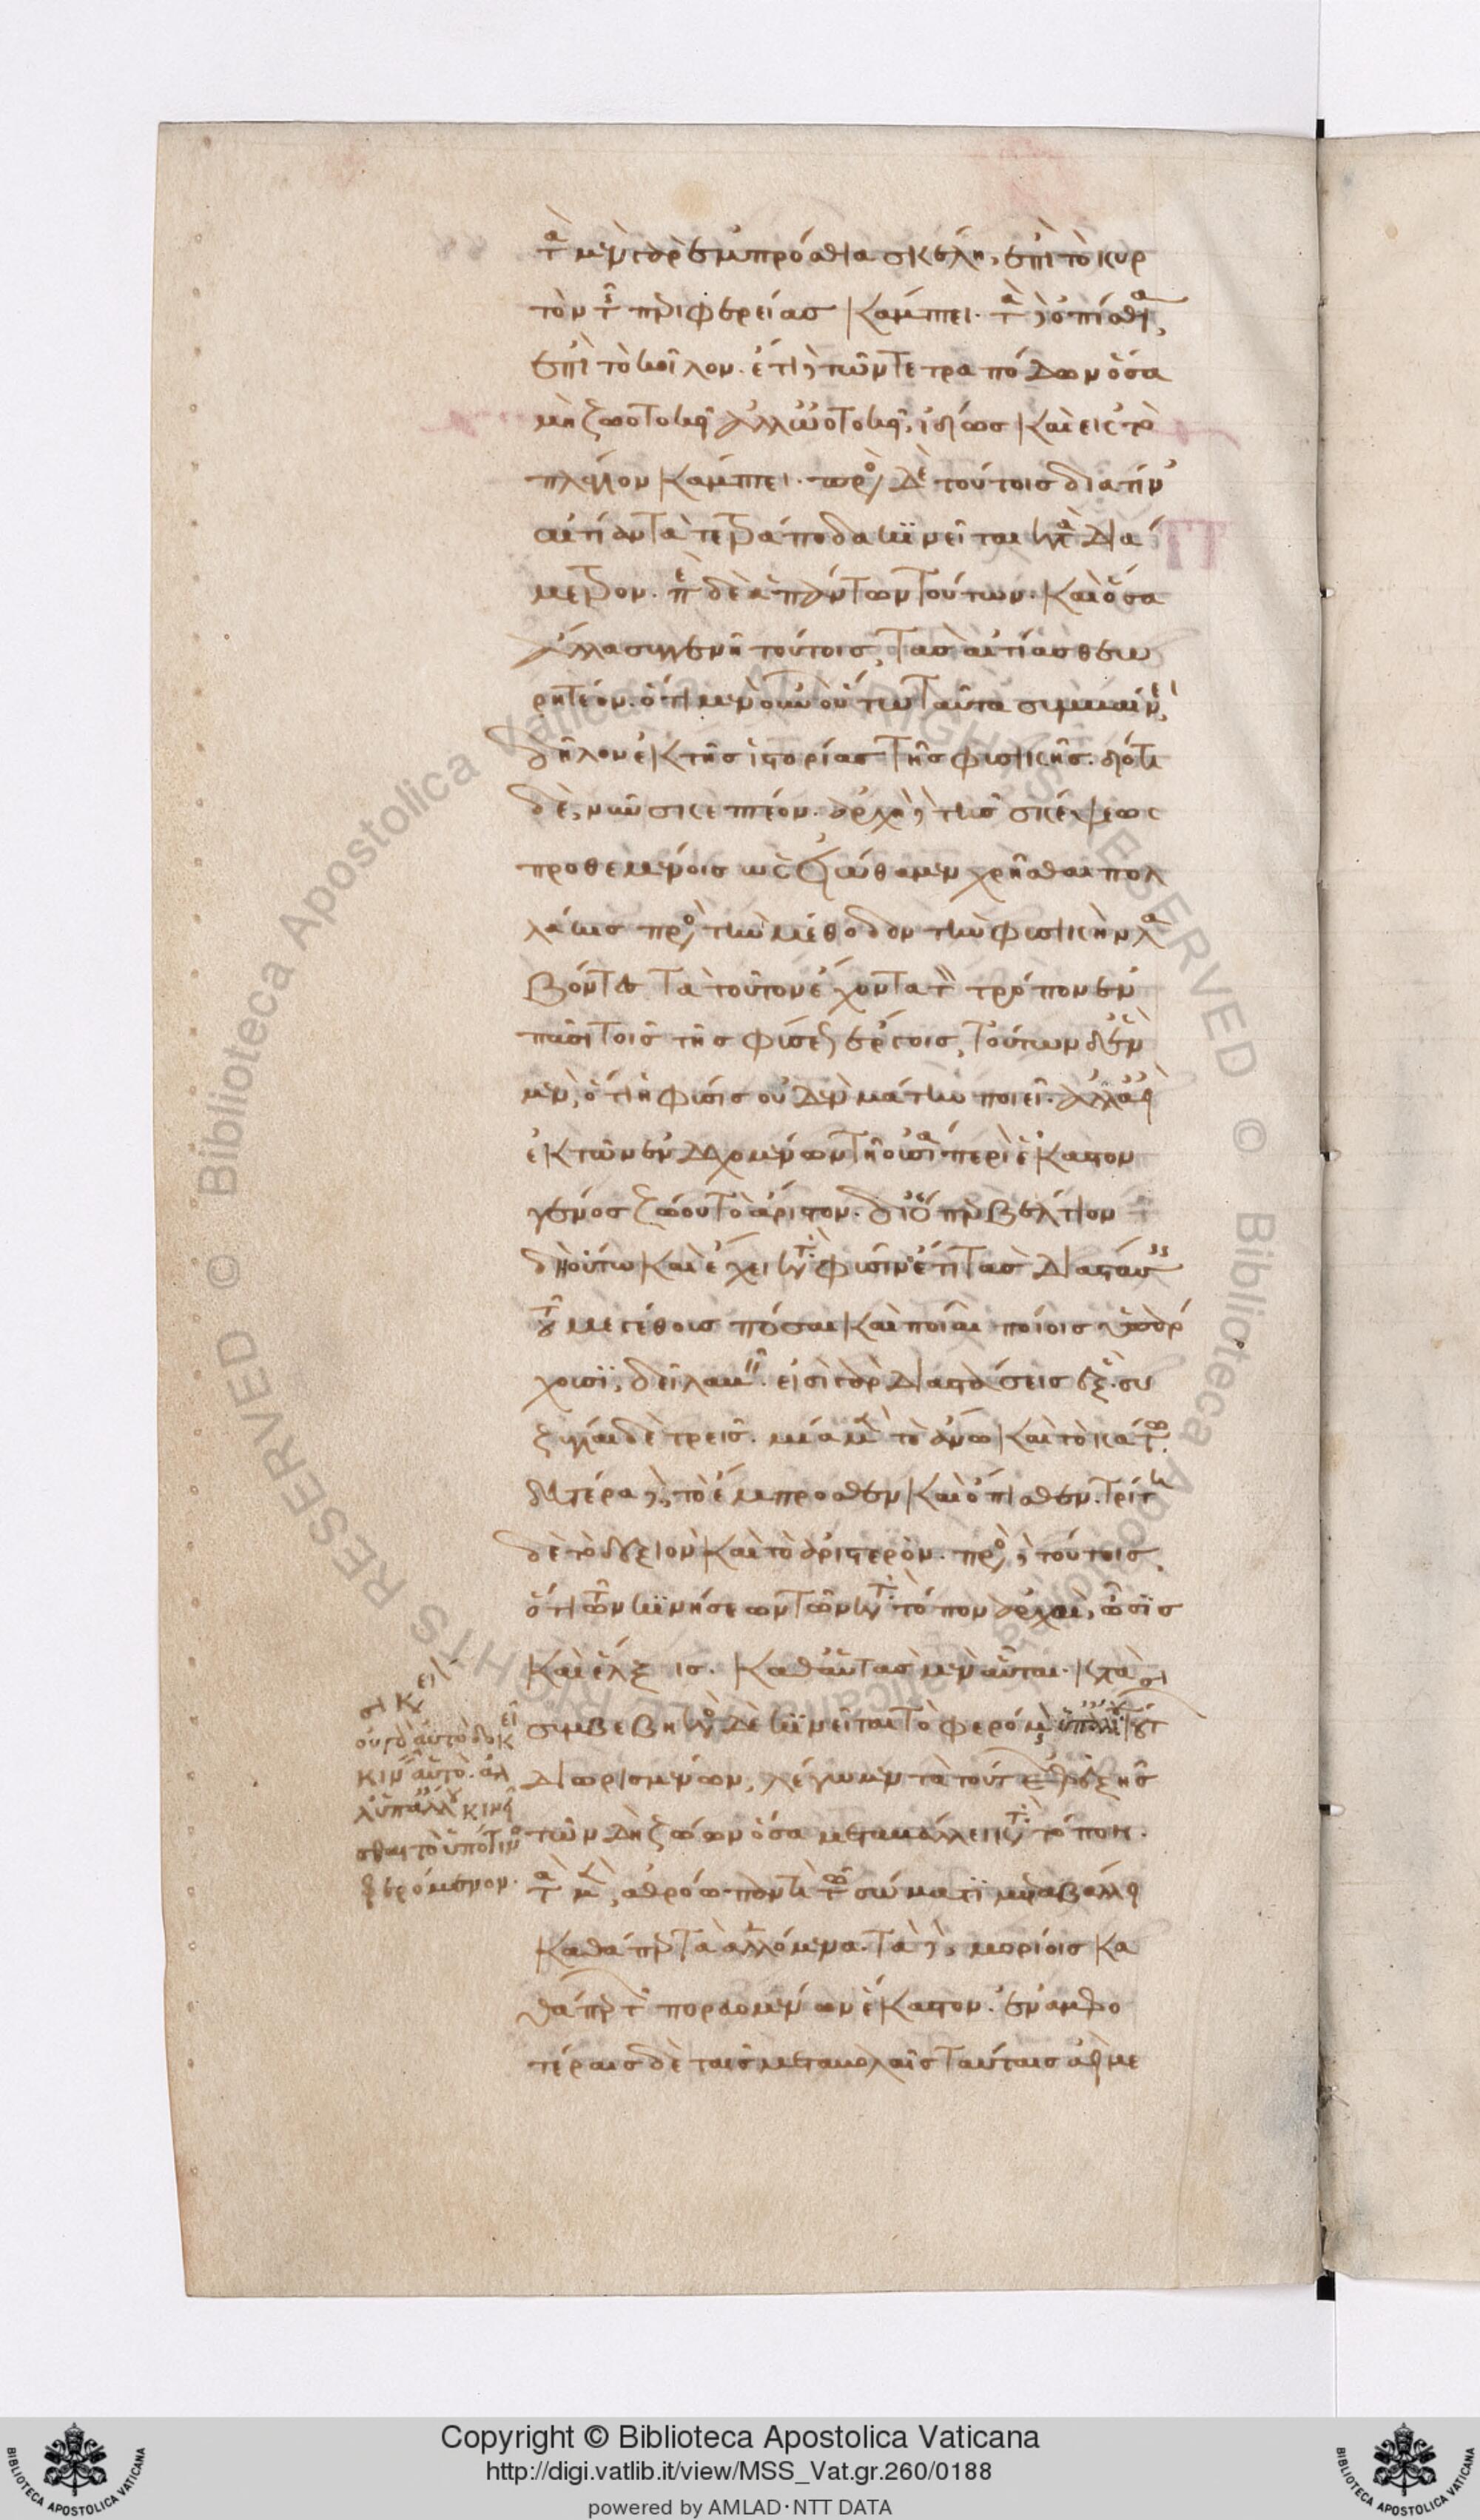 τὰ μὲν γὰρ ἐμπρόσθια σκέλη, ἐπὶ τὸ κυρ
τὸν τῆς περιφερείας κάμπει. τὰ δὲ ὀπίσθια,
ἐπὶ τὸ κοῖλον. ἔτι δὲ τῶν τετραπόδων ὅσα
μὴ ζωοτοκεῖ ἀλλ' ὠοτοκεῖ, ἰδίως καὶ εἰς τὸ
πλάγιον κάμπει. πρὸς δὲ τούτοις διὰ τίν'
αἰτίαν τὰ τετράποδα κινεῖται κατὰ διά
μετρον. περὶ δὲ ἁπάντων τούτων. καὶ ὅσα
ἄλλα συγγενῆ τούτοις, τὰς αἰτίας θεω
ρητέον. ὅτι μὲν οὖν οὕτω ταῦτα συμβαίνει,
δῆλον ἐκ τῆς ἱστορίας τῆς φυσικῆς. διότι
δὲ, νῦν σκεπτέον. ἀρχὴ δὲ τῆς σκέψεως
προθεμένοις ὡς εἰώθαμεν χρῆσθαι πολ
λάκις πρὸς τὴν μέθοδον τὴν φυσικὴν λα
βόντες τὰ τοῦτον ἔχοντα τὸν τρόπον ἐν
πᾶσι τοῖς τῆς φύσεως ἔργοις, τούτων δ' ἓν
μὲν, ὅτι ἡ φύσις οὐδὲν μάτην ποιεῖ. ἀλλ' ἀεὶ
ἐκ τῶν ἐνδεχομένων τῇ οὐσίᾳ περὶ ἕκαστον
γένος ζώου τὸ ἄριστον. διόπερ βέλτιον
δὴ οὕτω καὶ ἔχει κατὰ φύσιν. ἔτι τὰς διαστάσεις
τοῦ μεγέθους πόσαι καὶ ποῖαι ποίοις ὑπάρ
χουσι, δεῖ λαβεῖν. εἰσὶ γὰρ διαστάσεις ἕξ. συ
ζυγίαι δὲ τρεῖς. μία μὲν τὸ ἄνω καὶ τὸ κάτω.
δευτέρα δὲ, τὸ ἔμπροσθεν καὶ ὄπισθεν. τρίτη
δὲ τὸ δεξιὸν καὶ τὸ ἀριστερόν. πρὸς δὲ τούτοις
ὅτι τῶν κινήσεων τῶν κατὰ τόπον ἀρχαὶ, ὦσις
καὶ ἕλξις. καθ' αὑτὰς μὲν αὗται. κατὰ
συμβεβηκὸς δὲ κινεῖται τὸ φερόμενον ὑπ' ἄλλου τούτων
διωρισμένων, λέγωμεν τὰ τούτων ἐφεξῆς
τῶν δὴ ζώων ὅσα μεταβάλλει κατὰ τόπον.
τὰ μὲν, ἀθρόῳ παντὶ τῷ σώματι μεταβάλλει
καθάπερ τὰ ἁλλόμενα. τὰ δὲ, μορίοις κα
θάπερ τῶν πορευομένων ἕκαστον. ἐν ἀμφο
τέραις δὲ ταῖς μεταβολαῖς ταύταις ἀεὶ με
οὐ γὰρ αὐτὸ δοκεῖ
κινεῖν αὐτὸ. ἀλ
λ' ὑπ' ἄλλου κινεῖ
σθαι τὸ ὑπό τινος
φερόμενον.
Copyright © Biblioteca Apostolica Vaticana
http://digi.vatlib.it/view/MSS_Vat.gr.260/0188
powered by AMLAD·NTT DATA
BIBLIOTECA APOSTOLICA VATICANA
BIBLIOTECA APOSTOLICA VATICANA